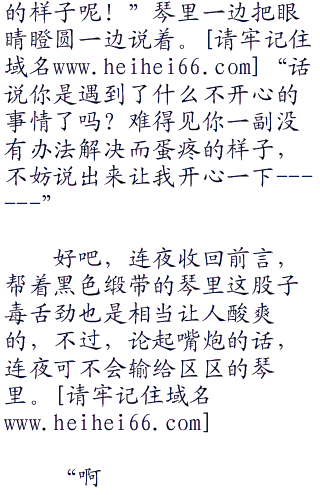 的样子呢！”琴里一边把眼
睛瞪圆一边说着。[请牢记住
域名www.heihei66.com]“话
说你是遇到了什么不开心的
事情了吗？难得见你一副没
有办法解决而蛋疼的样子，
不妨说出来让我开心一下---
---”
好吧，连夜收回前言，
帮着黑色缎带的琴里这股子
毒舌劲也是相当让人酸爽
的，不过，论起嘴炮的话，
连夜可不会输给区区的琴
里。[请牢记住域名
www.heihei66.com]
“啊